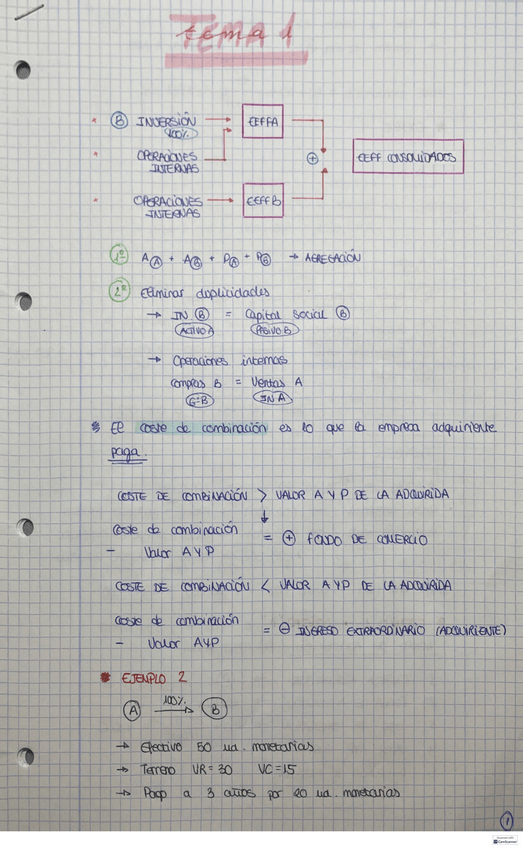 TEMA 1
* Ⓑ INVERSIÓN → EEFFA
100%
* OPERACIONES
INTERNAS
⊕ EEFF CONSOLIDADOS
* OPERACIONES
INTERNAS → EEFF B
1º A Ⓐ + A Ⓑ + P Ⓐ + P Ⓑ → AGREGACIÓN
2º Eliminar duplicidades
→ IN Ⓑ = Capital Social Ⓑ
ACTIVO A PASIVO B
→ Operaciones internas
compras B = Ventas A
G=B IN A
* El coste de combinación es lo que la empresa adquiriente
paga.
COSTE DE COMBINACIÓN > VALOR A Y P DE LA ADQUIRIDA
↓
Coste de combinación
- Valor A Y P = ⊕ FONDO DE COMERCIO
COSTE DE COMBINACIÓN < VALOR A Y P DE LA ADQUIRIDA
Coste de combinación
- Valor AYP = ⊖ INGRESO EXTRAORDINARIO (ADQUIRIENTE)
* EJEMPLO 2
Ⓐ 100% → Ⓑ
→ Efectivo 50 ud. monetarias
→ Terreno VR=30 VC=15
→ Pago a 3 años por 20 ud. monetarias
1
CamScanner